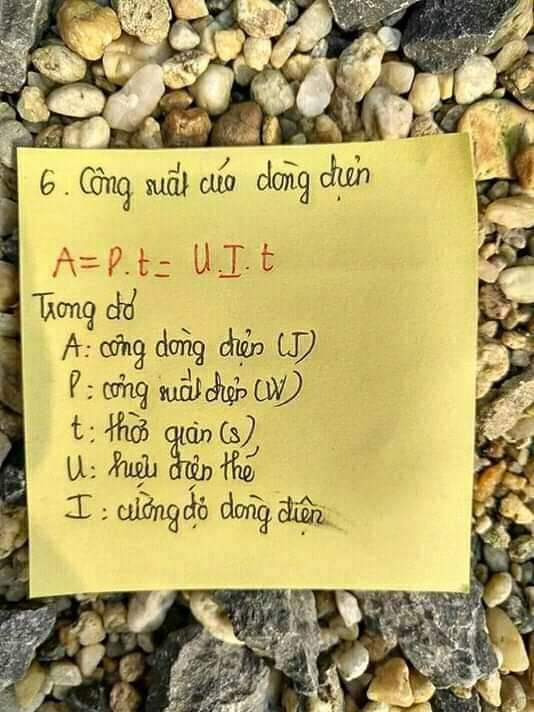 6. Công suất của dòng điện
A = P.t = U.I.t
Trong đó
A: công dòng điện (J)
P: công suất điện (W)
t: thời gian (s)
U: hiệu điện thế
I: cường độ dòng điện